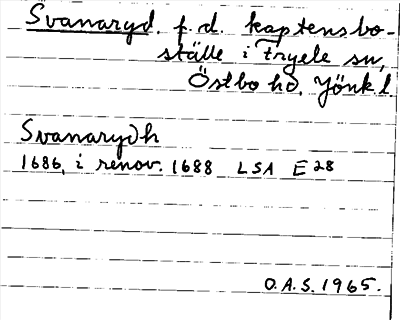 Svanaryd. f.d. kaptensbo-
ställe i Tryele sn,
Östbo hd. Jönk l.
Svanarydh
1686, i renov. 1688 LSA E 28
O.A.S. 1965.